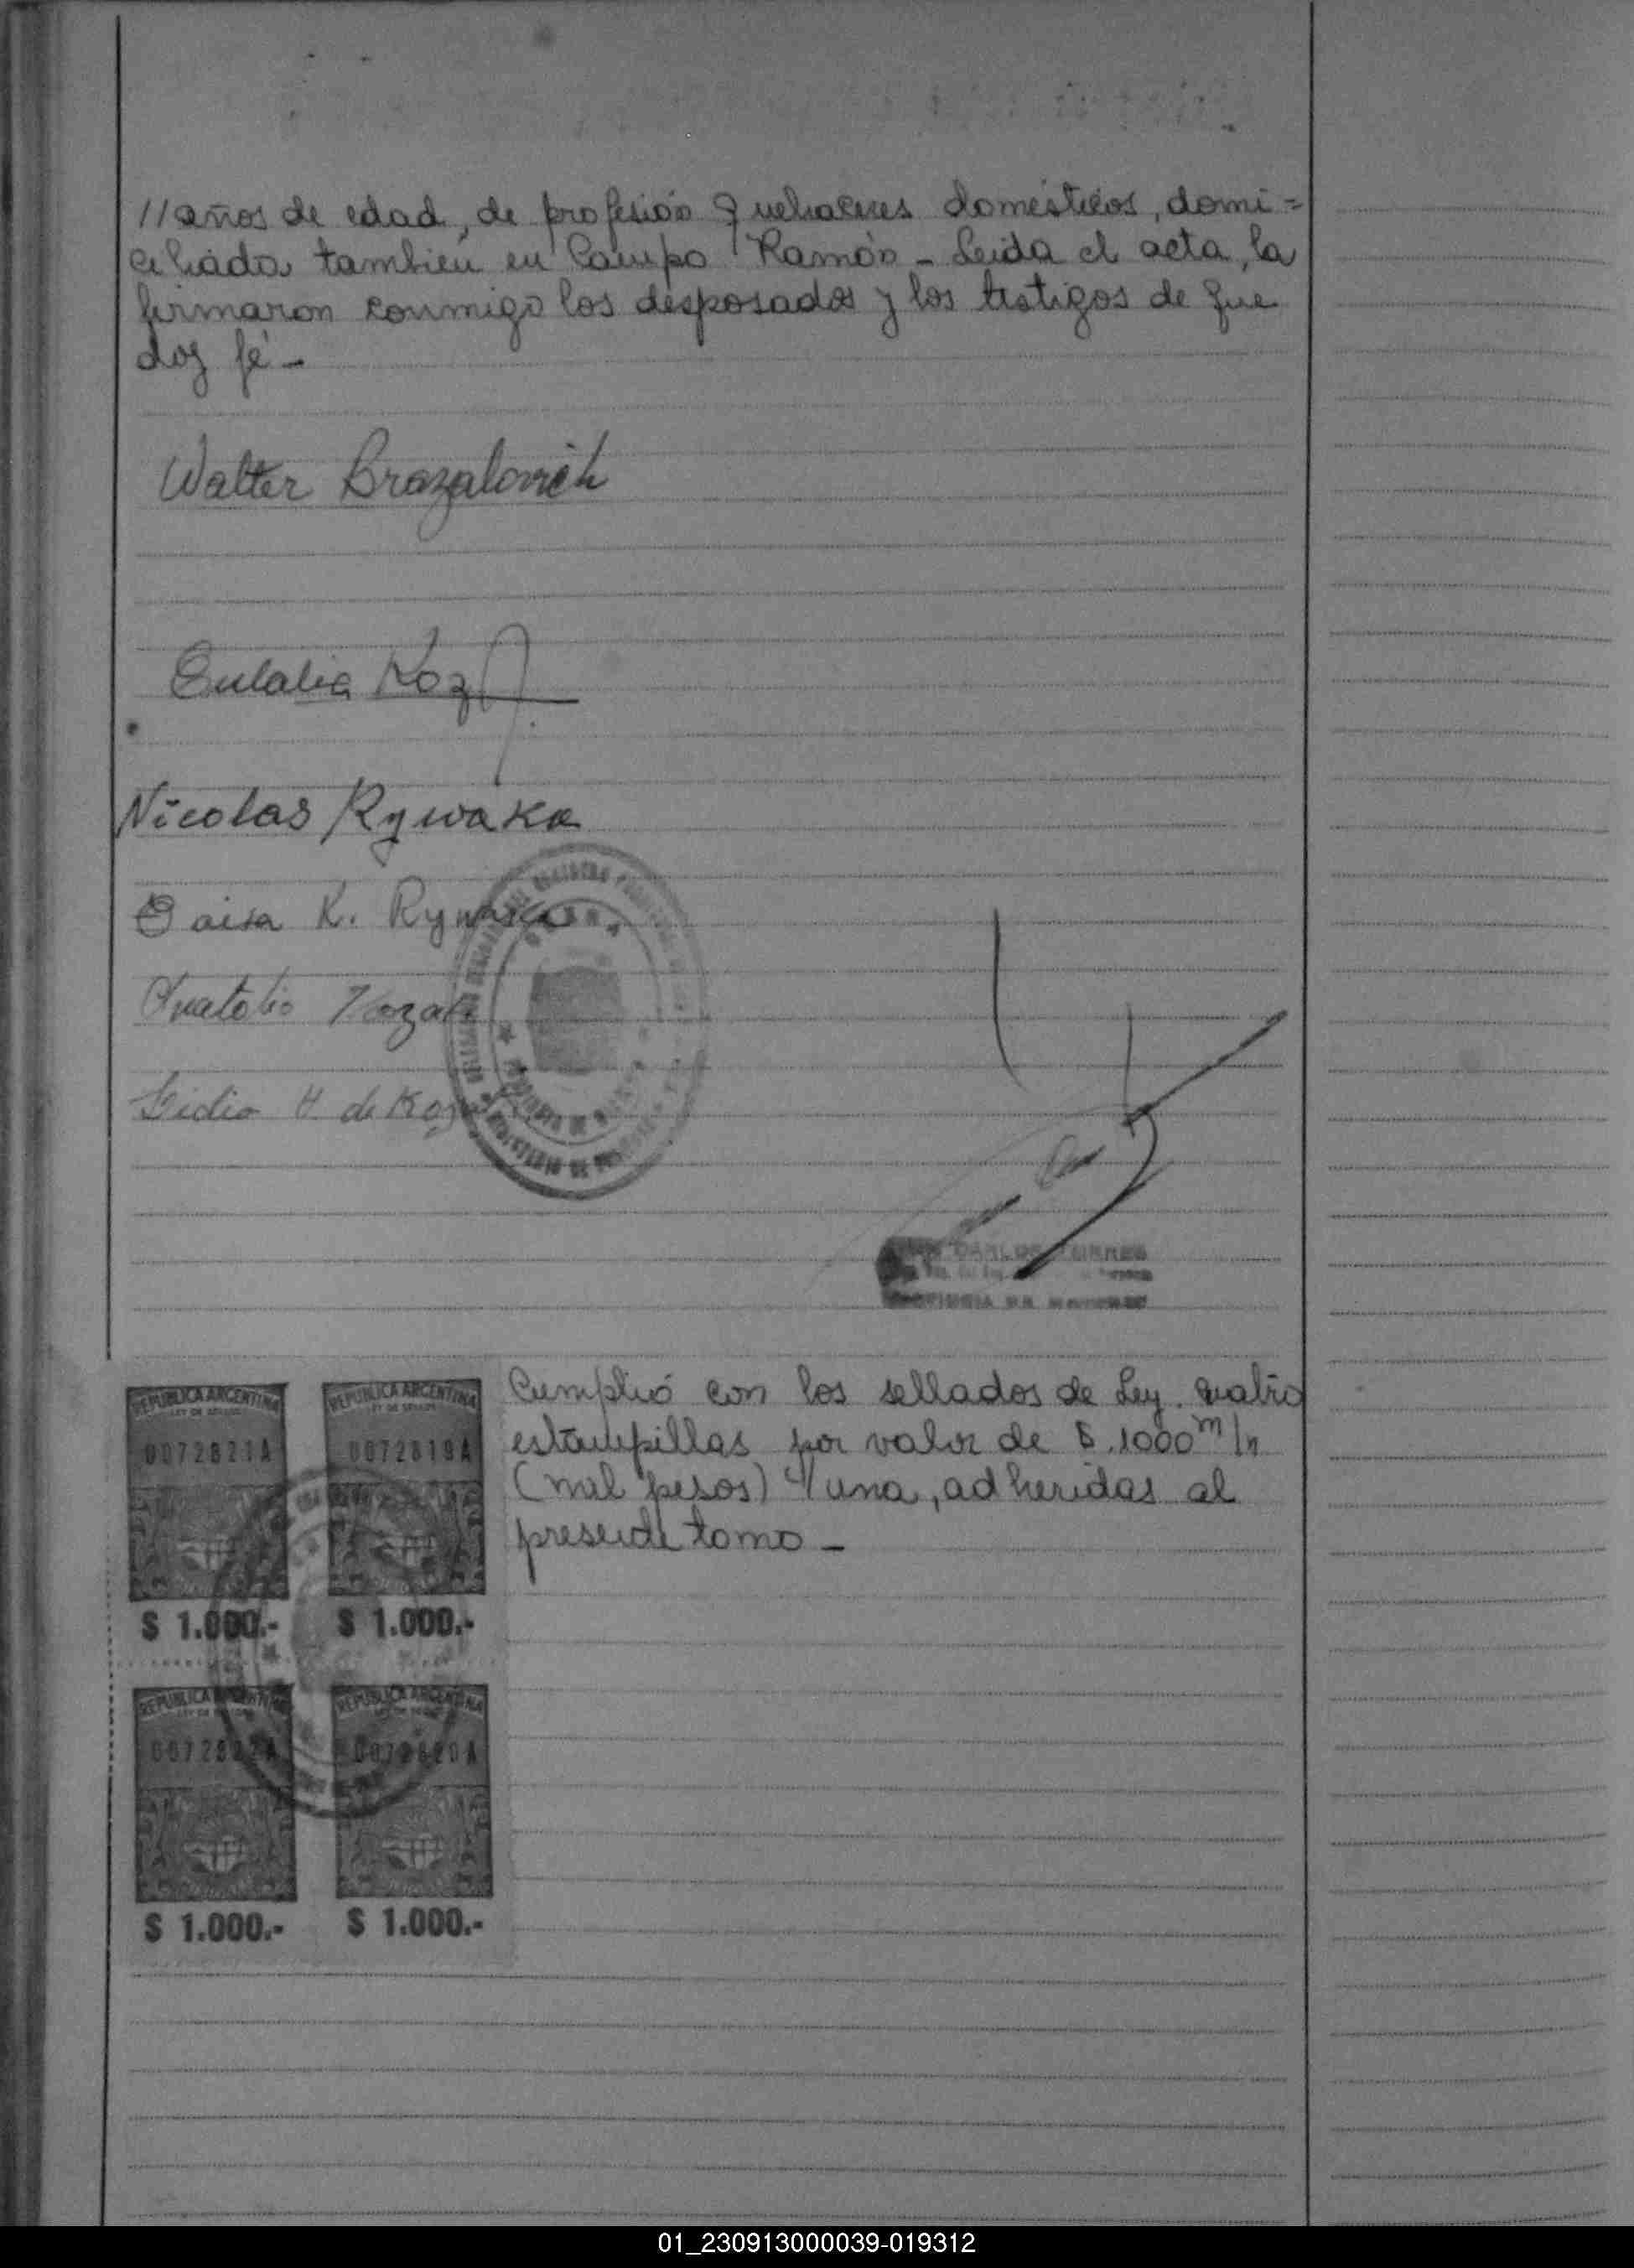 //años de edad, de profesión quehaceres domésticos, domi=
ciliada también en Campo Ramón - Leída el acta, la
firmaron conmigo los desposados y los testigos de que
doy fé -
Walter Brazalovich
Eulalia Koz
Nicolas Rywaka
K. Rywaka
Anatolio Kozak
Lidia H de Koz
CARLOS
Cumplió con los sellados de Ley. cuatro
estampillas por valor de $.1000 m/n
(mil pesos) c/una, adheridas al
presente tomo -
REPUBLICA ARGENTINA REPUBLICA ARGENTINA
LEY DE SELLOS LEY DE SELLOS
0072821A 0072819A
$ 1.000.- $ 1.000.-
REPUBLICA ARGENTINA REPUBLICA ARGENTINA
$ 1.000.- $ 1.000.-
01_230913000039-019312